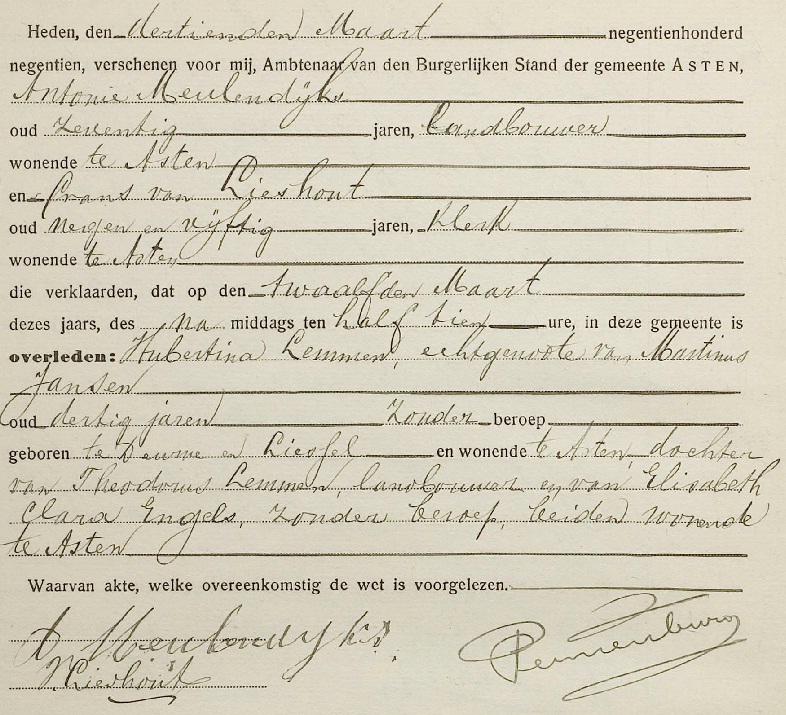 Heden, den dertienden Maart negentienhonderd
negentien, verschenen voor mij, Ambtenaar van den Burgerlijken Stand der gemeente ASTEN,
Antonie Meulendijks
oud zeventig jaren, landbouwer
wonende te Asten
en Frans van Lieshout
oud negen en vijftig jaren, Klerk
wonende te Asten
die verklaarden, dat op den twaalfden Maart
dezes jaars, des na middags ten half tien ure, in deze gemeente is
overleden: Hubertina Lemmen, echtgenoote van Martinus
Jansen
oud dertig jaren zonder beroep
geboren te Deurne en Liessel en wonende te Asten, dochter
van Theodorus Lemmen, landbouwer en van Elisabeth
Clara Engels, zonder beroep, beiden wonende
te Asten
Waarvan akte, welke overeenkomstig de wet is voorgelezen.
A. Meulendijks
Lieshout